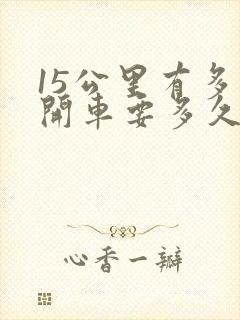 15公里有多
開車要多久
心香一瓣